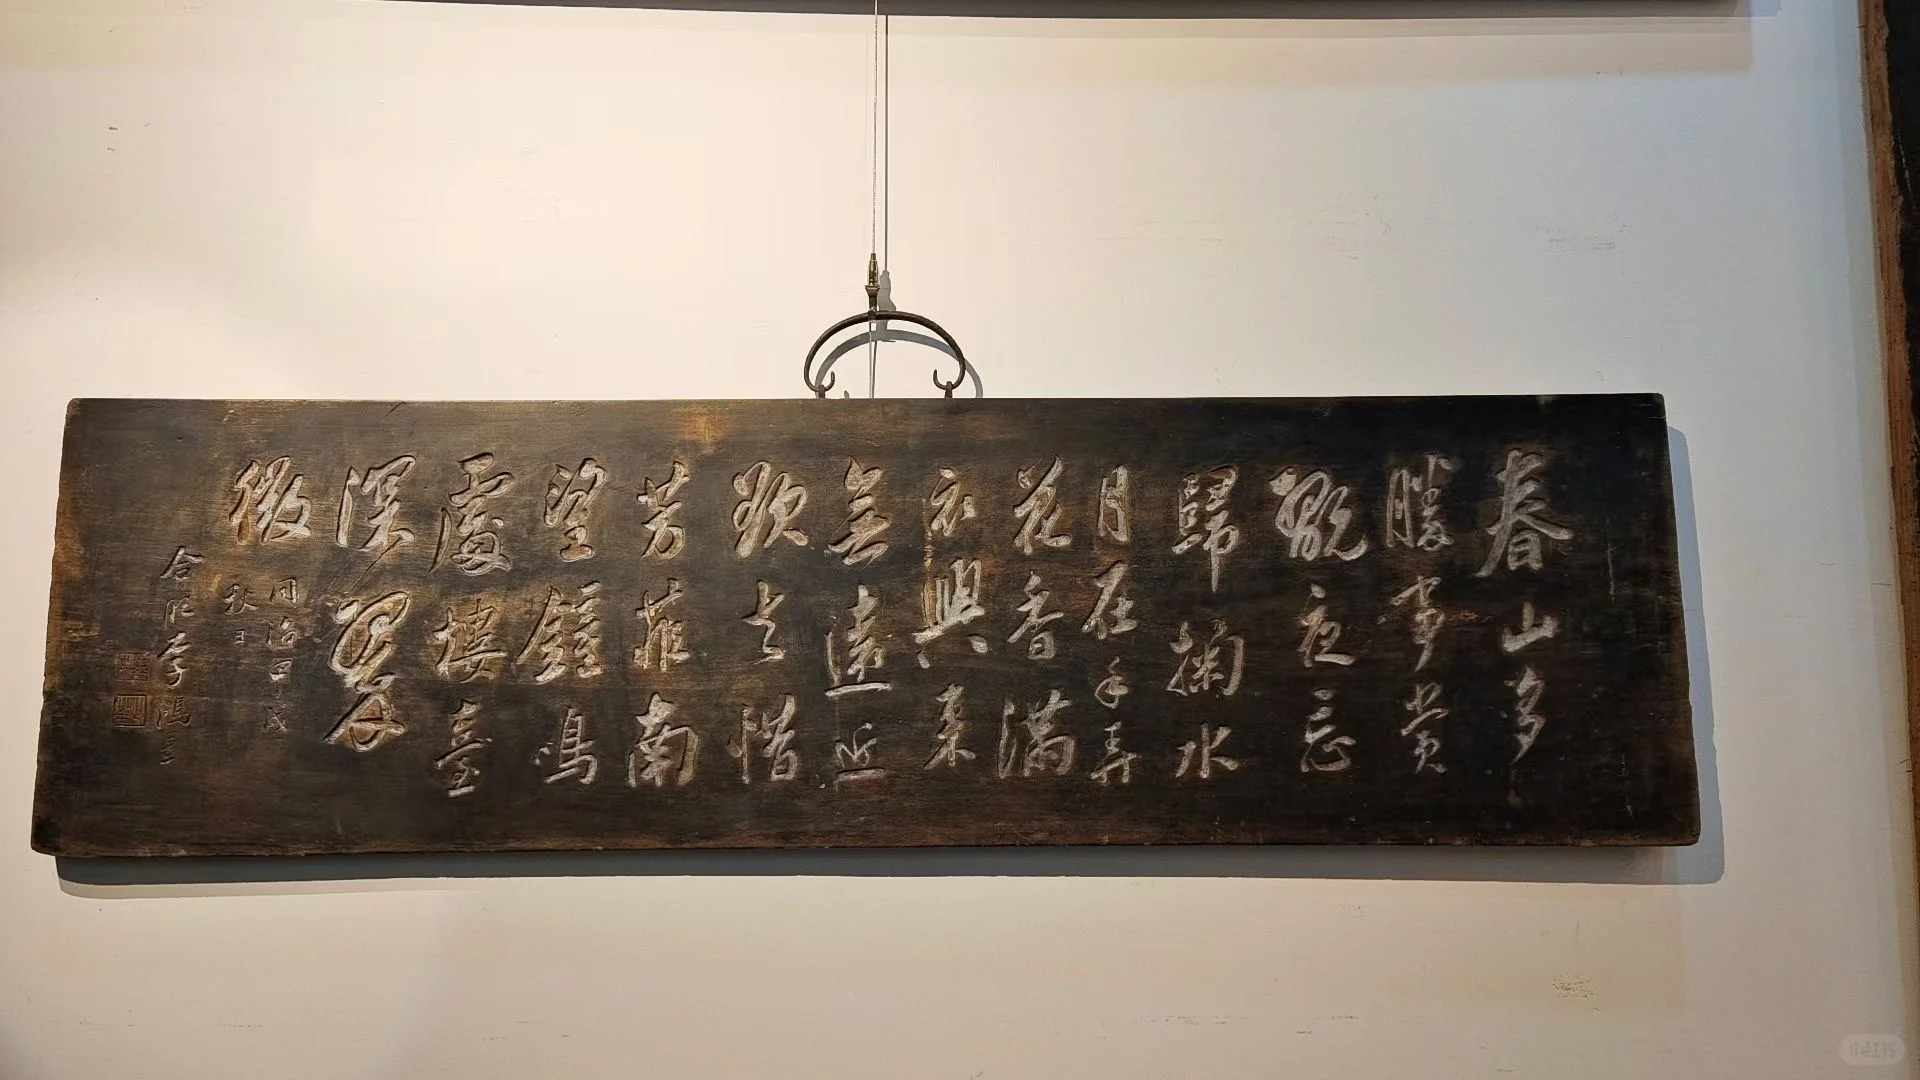 春山多
勝事賞
翫夜忘
歸掬水
月在手弄
花香滿
衣興来
無遠近
欲去惜
芳菲南
望鐘鳴
處樓臺
深翠
微
同治甲戌
秋日
合肥李鴻章
小红书